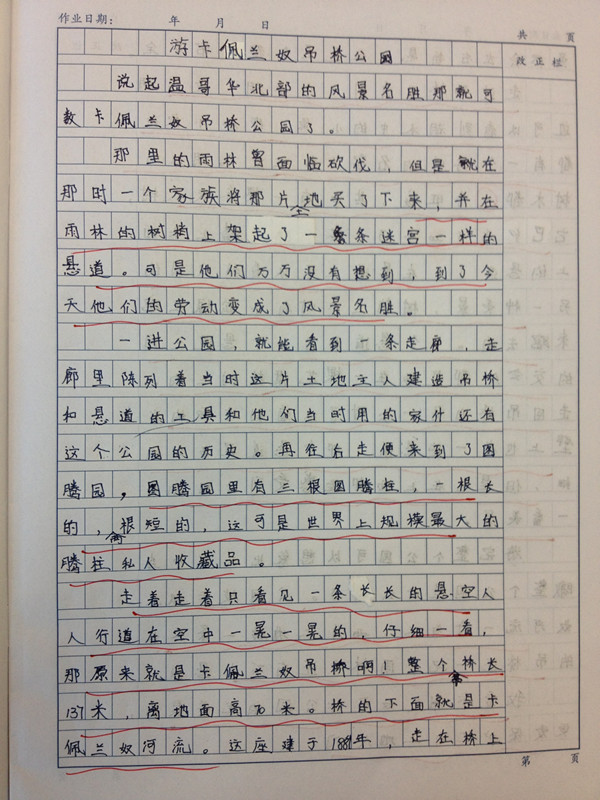 作业日期： 年 月 日
共 页
改正栏
游卡佩兰奴吊桥公园
说起温哥华北部的风景名胜那就可
数卡佩兰奴吊桥公园了。
那里的雨林曾面临砍伐，但是就在
那时一个家族将那片土地买了下来，并在
雨林的树梢上架起了一条迷宫一样的
悬道。可是他们万万没有想到，到了今
天他们的劳动变成了风景名胜。
一进公园，就能看到一条走廊，走
廊里陈列着当时这片土地主人建造吊桥
和悬道的工具和他们当时用的家什还有
这个公园的历史。再往右走便来到了图
腾园，图腾园里有三根图腾柱，一根长
的，两根短的，这可是世界上规模最大的
腾柱私人收藏品。
走着走着只看见一条长长的悬空人
人行道在空中一晃一晃的，仔细一看，
那原来就是卡佩兰奴吊桥啊！整个桥长
137米，离地面高70米。桥的下面就是卡
佩兰奴河流。这座建于1889年，走在桥上
第 页